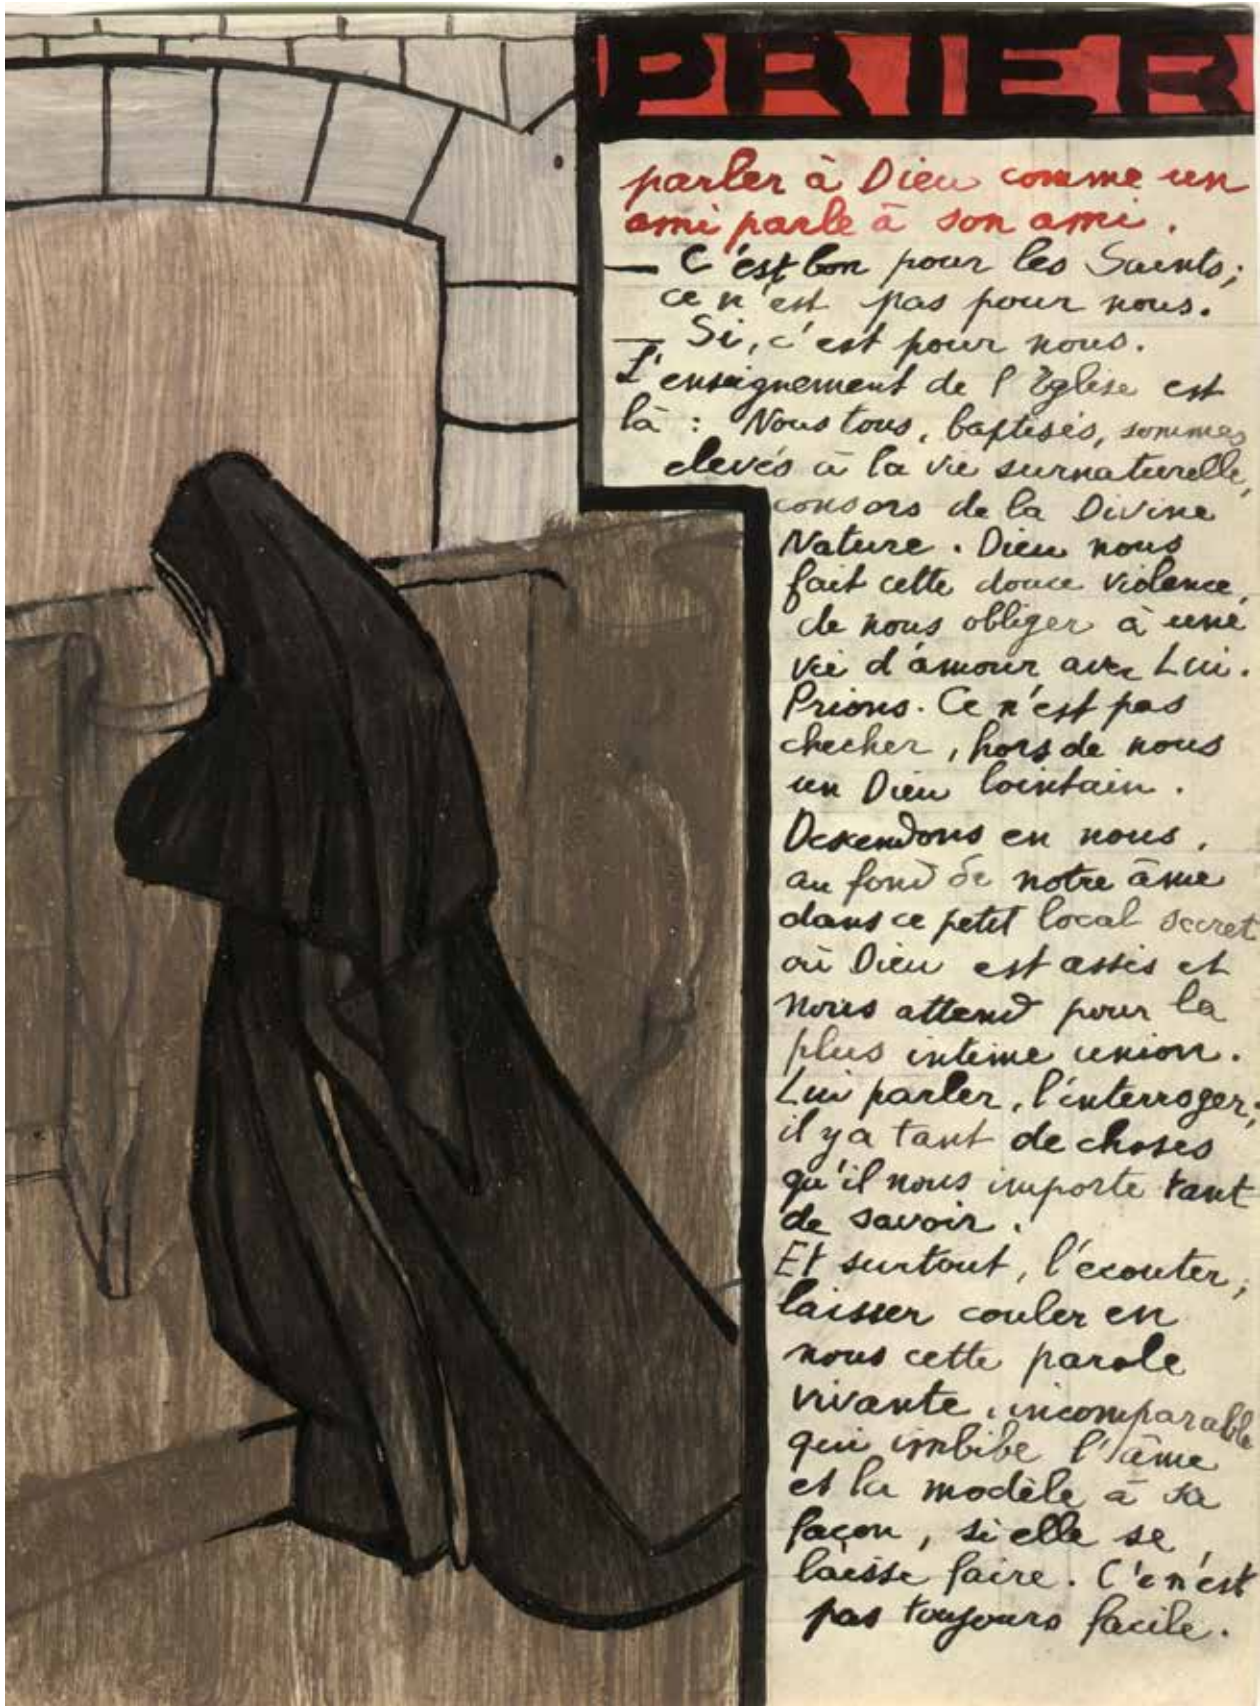 PRIER
parler à Dieu comme un
ami parle à son ami.
— C'est bon pour les Saints;
ce n'est pas pour nous.
— Si, c'est pour nous.
L'enseignement de l'Eglise est
là : Nous tous, baptisés, sommes
elevés à la vie surnaturelle,
consors de la Divine
Nature. Dieu nous
fait cette douce violence,
de nous obliger à une
vie d'amour avec Lui.
Prions. Ce n'est pas
checher, hors de nous
un Dieu lointain.
Descendons en nous,
au fond de notre âme
dans ce petit local secret
où Dieu est assis et
nous attend pour la
plus intime union.
Lui parler, l'interroger;
il y a tant de choses
qu'il nous importe tant
de savoir.
Et surtout, l'ecouter,
laisser couler en
nous cette parole
vivante, incomparable
qui imbibe l'âme
et la modèle à sa
façon, si elle se
laisse faire. C'e n'est
pas toujours facile.